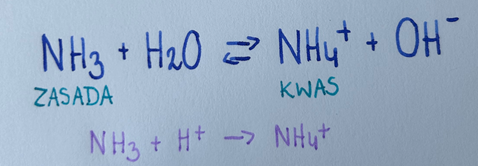 NH₃ + H₂O ⇌ NH₄⁺ + OH⁻
ZASADA KWAS
NH₃ + H⁺ → NH₄⁺